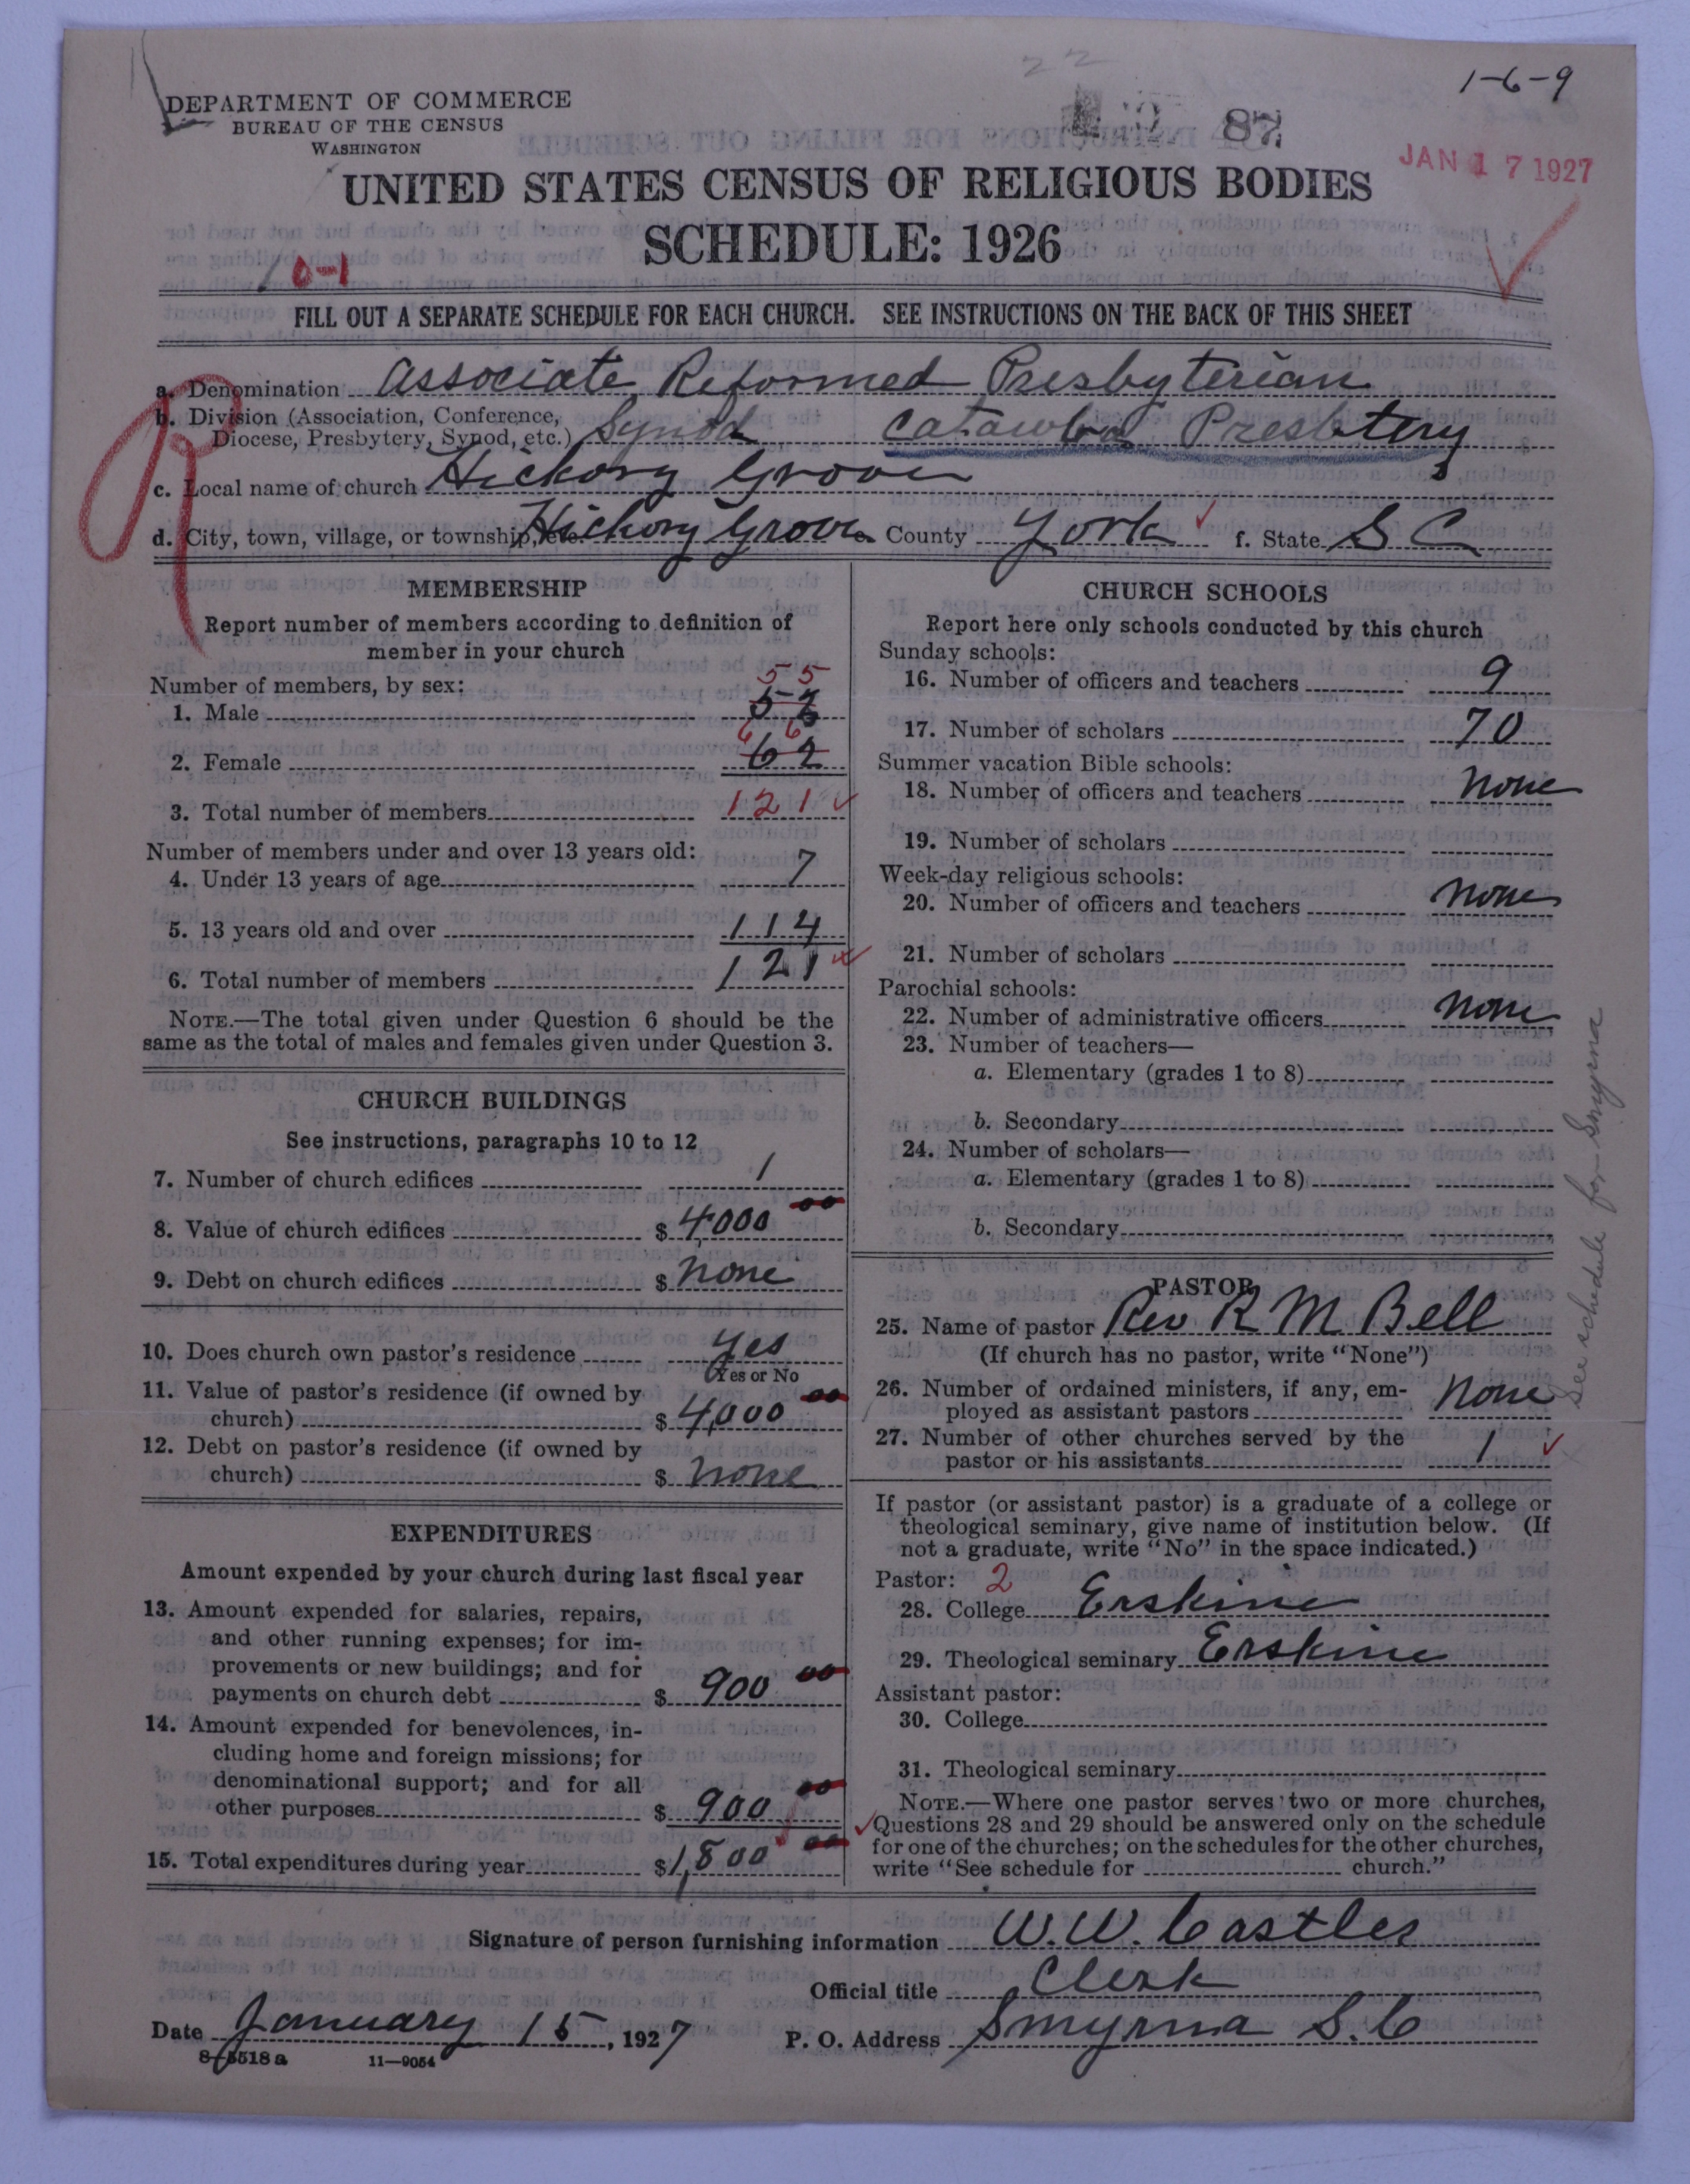 1-6-9
DEPARTMENT OF COMMERCE
BUREAU OF THE CENSUS
WASHINGTON
87
JAN 17 1927
UNITED STATES CENSUS OF RELIGIOUS BODIES
SCHEDULE: 1926
0-1
FILL OUT A SEPARATE SCHEDULE FOR EACH CHURCH. SEE INSTRUCTIONS ON THE BACK OF THIS SHEET
a. Denomination Associate Reformed Presbyterian
b. Division (Association, Conference,
Diocese, Presbytery, Synod, etc.) Synod Catawba Presbtery
c. Local name of church Hickory Grove
d. City, town, village, or township, etc. Hickory Grove County York f. State S C
MEMBERSHIP
Report number of members according to definition of
member in your church
Number of members, by sex:
55
1. Male
66
2. Female 62
3. Total number of members 121
Number of members under and over 13 years old:
4. Under 13 years of age 7
5. 13 years old and over 114
6. Total number of members 121
NOTE.—The total given under Question 6 should be the
same as the total of males and females given under Question 3.
CHURCH BUILDINGS
See instructions, paragraphs 10 to 12
7. Number of church edifices 1
8. Value of church edifices $ 4,000 00
9. Debt on church edifices $ none
10. Does church own pastor's residence Yes
Yes or No
11. Value of pastor's residence (if owned by
church) $ 4,000 00
12. Debt on pastor's residence (if owned by
church) $ none
EXPENDITURES
Amount expended by your church during last fiscal year
13. Amount expended for salaries, repairs,
and other running expenses; for im-
provements or new buildings; and for
payments on church debt $ 900 00
14. Amount expended for benevolences, in-
cluding home and foreign missions; for
denominational support; and for all
other purposes $ 900 00
15. Total expenditures during year $ 1,800 00
CHURCH SCHOOLS
Report here only schools conducted by this church
Sunday schools:
16. Number of officers and teachers 9
17. Number of scholars 70
Summer vacation Bible schools:
18. Number of officers and teachers none
19. Number of scholars
Week-day religious schools:
20. Number of officers and teachers none
21. Number of scholars
Parochial schools:
22. Number of administrative officers none
23. Number of teachers—
a. Elementary (grades 1 to 8)
b. Secondary
24. Number of scholars—
a. Elementary (grades 1 to 8)
b. Secondary
See schedule for Smyrna
PASTOR
25. Name of pastor Rev R M Bell
(If church has no pastor, write "None")
26. Number of ordained ministers, if any, em-
ployed as assistant pastors none
27. Number of other churches served by the
pastor or his assistants 1
If pastor (or assistant pastor) is a graduate of a college or
theological seminary, give name of institution below. (If
not a graduate, write "No" in the space indicated.)
Pastor: 2
28. College Erskine
29. Theological seminary Erskine
Assistant pastor:
30. College
31. Theological seminary
NOTE.—Where one pastor serves two or more churches,
Questions 28 and 29 should be answered only on the schedule
for one of the churches; on the schedules for the other churches,
write "See schedule for church."
Signature of person furnishing information W. W. Castles
Official title Clerk
Date January 15, 1927 P. O. Address Smyrna S. C
8-5518 a 11—9054